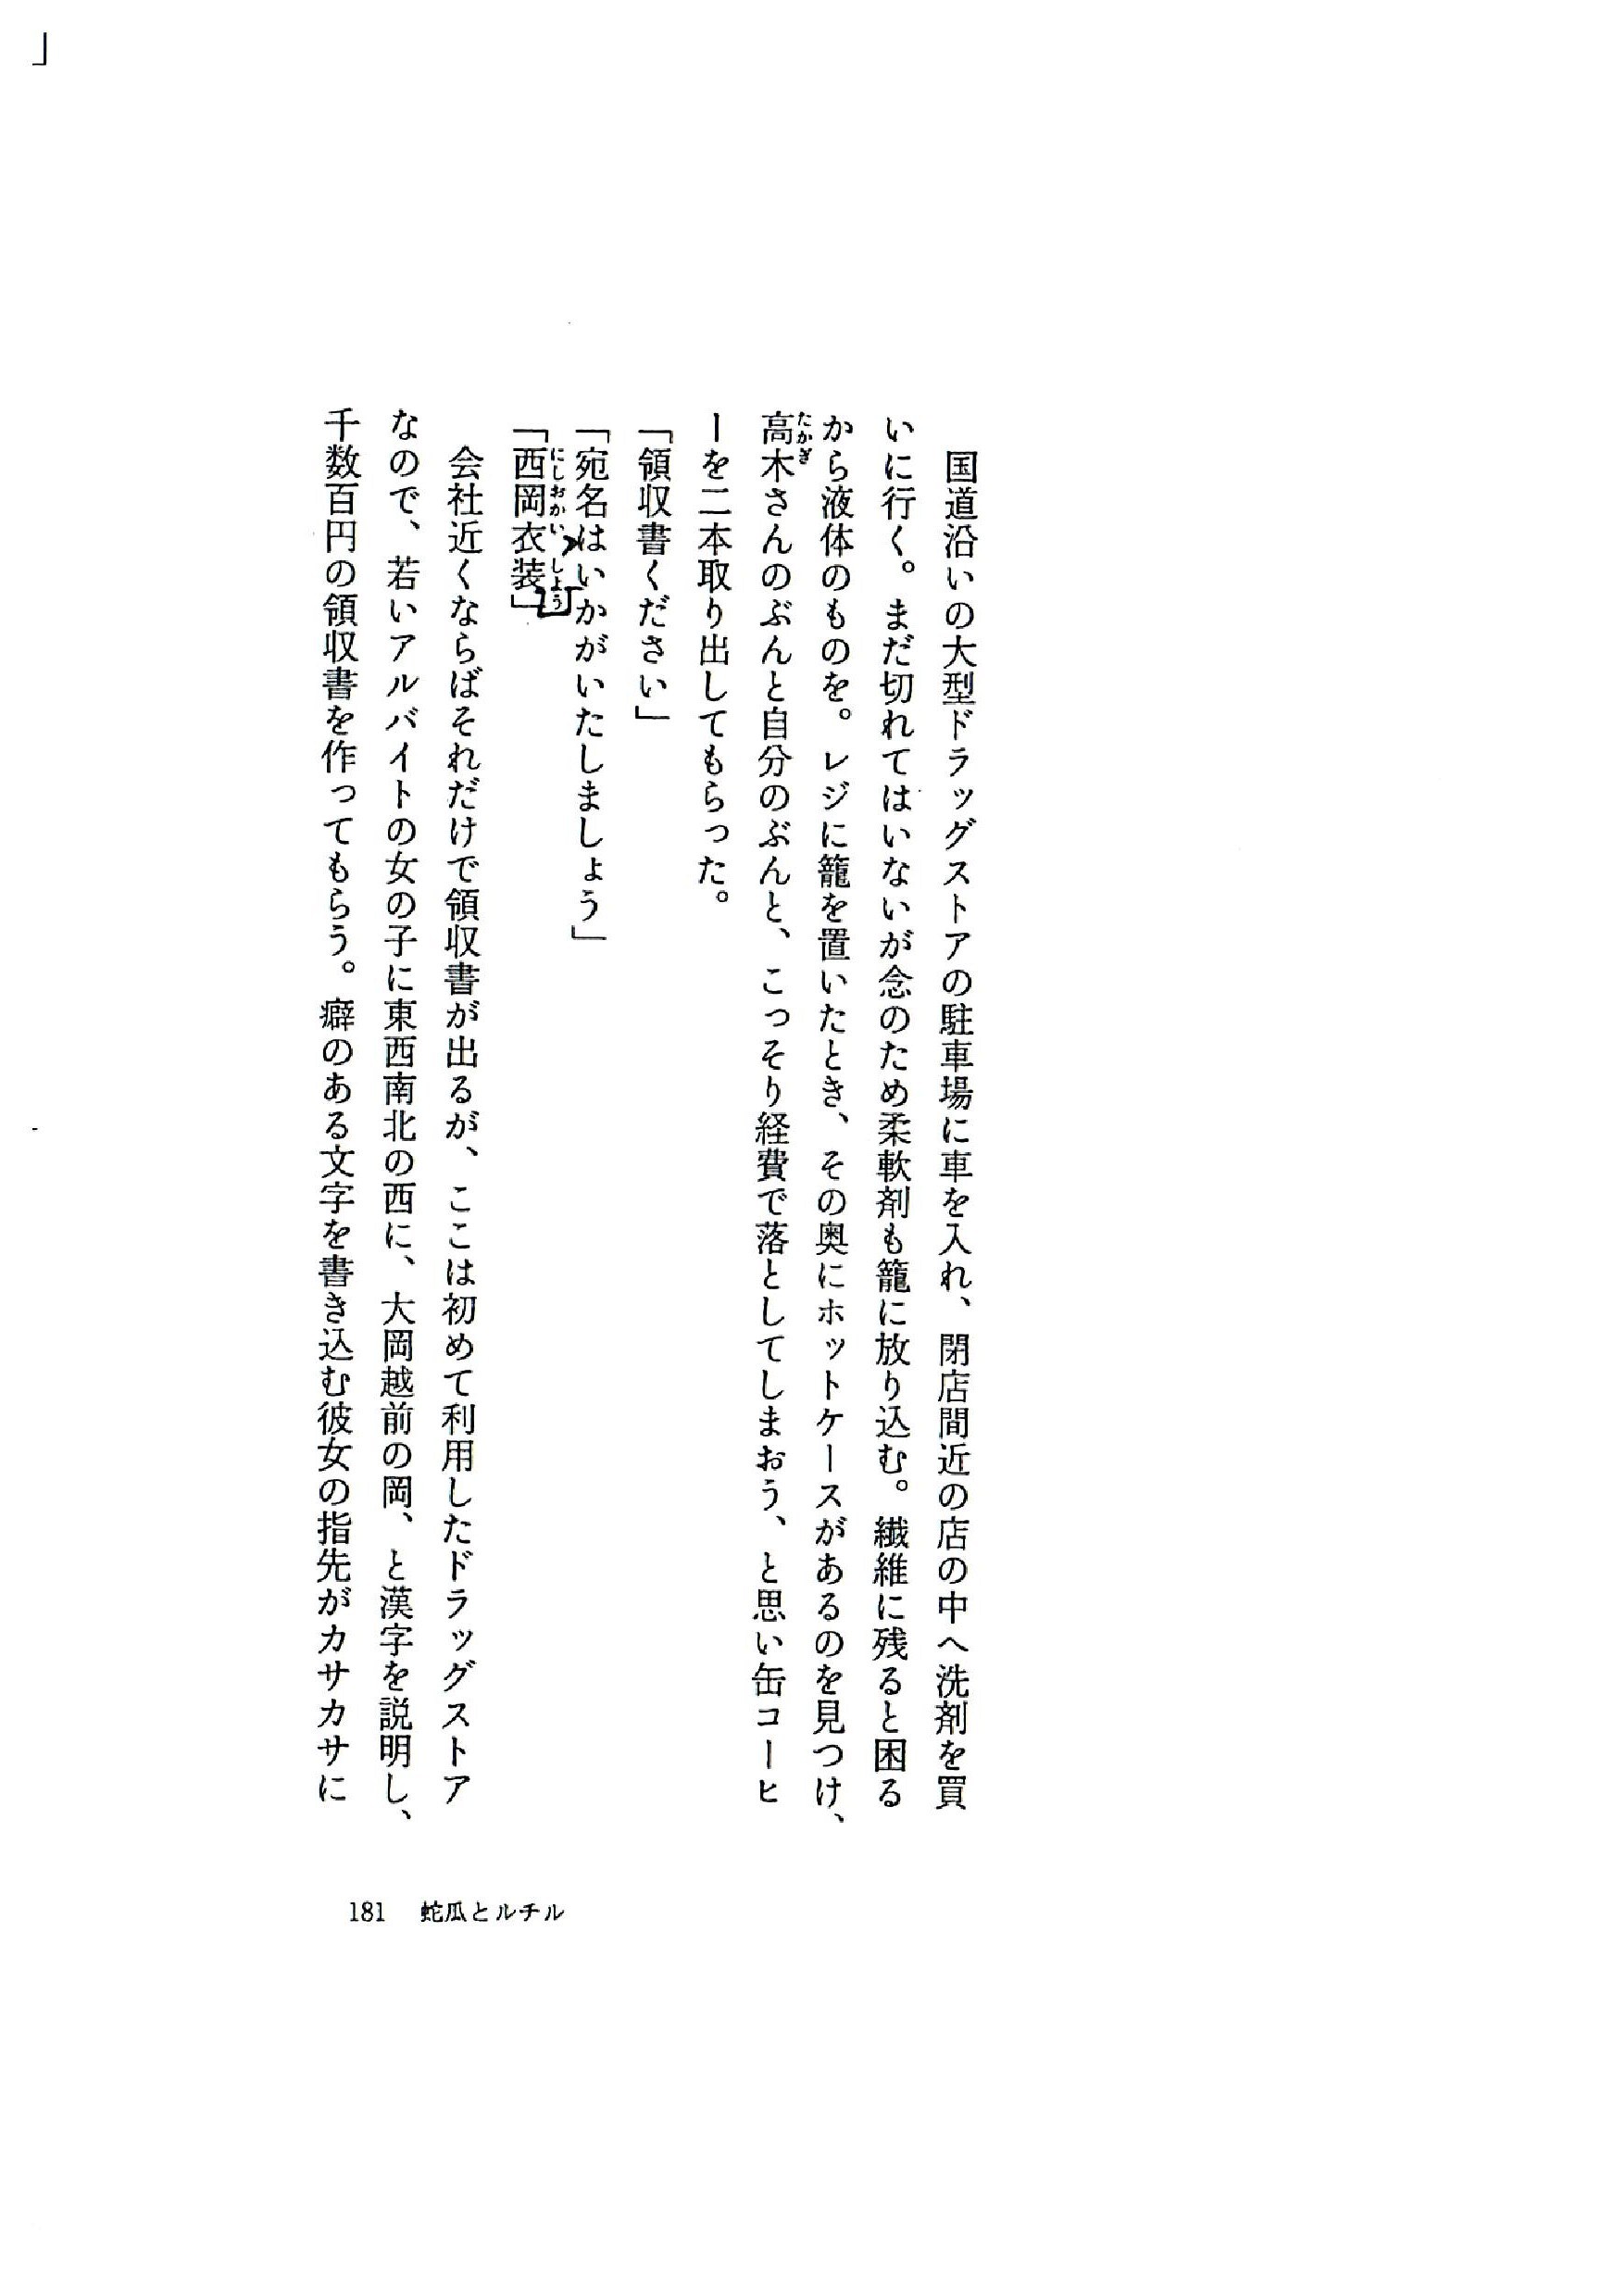 国道沿いの大型ドラッグストアの駐車場に車を入れ、閉店間近の店の中へ洗剤を買
いに行く。まだ切れてはいないが念のため柔軟剤も籠に放り込む。繊維に残ると困る
から液体のものを。レジに籠を置いたとき、その奥にホットケースがあるのを見つけ、
高木さんのぶんと自分のぶんと、こっそり経費で落としてしまおう、と思い缶コーヒ
たかぎ
ーを二本取り出してもらった。
「領収書ください」
「宛名はいかがいたしましょう」
「西岡衣装」
にしおかいしょう
会社近くならばそれだけで領収書が出るが、ここは初めて利用したドラッグストア
なので、若いアルバイトの女の子に東西南北の西に、大岡越前の岡、と漢字を説明し、
千数百円の領収書を作ってもらう。癖のある文字を書き込む彼女の指先がカサカサに
181 蛇瓜とルチル